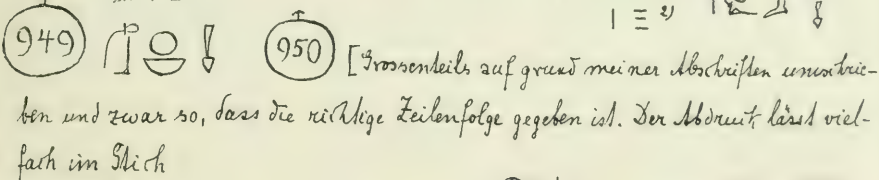 | ≡ 2)
949 950 [Grossenteils auf grund meiner Abschriften umschrie-
ben und zwar so, dass die richtige Zeilenfolge gegeben ist. Der Abdruck lässt viel-
fach im Stich